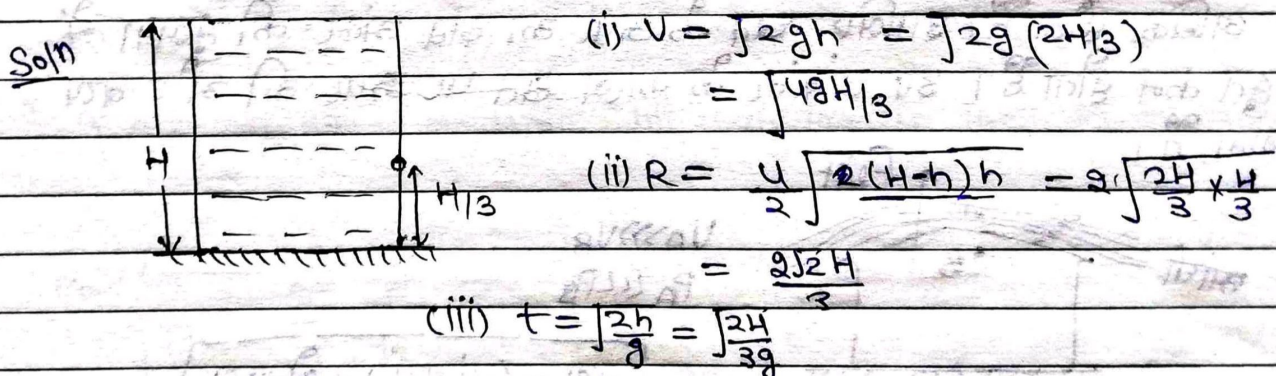 Soln
H
H/3
(i) V = √2gh = √2g(2H/3)
= √4gH/3
(ii) R = 4/2 √2(H-h)h = 2√2H/3 × H/3
= 2√2H/3
(iii) t = √2h/g = √2H/3g